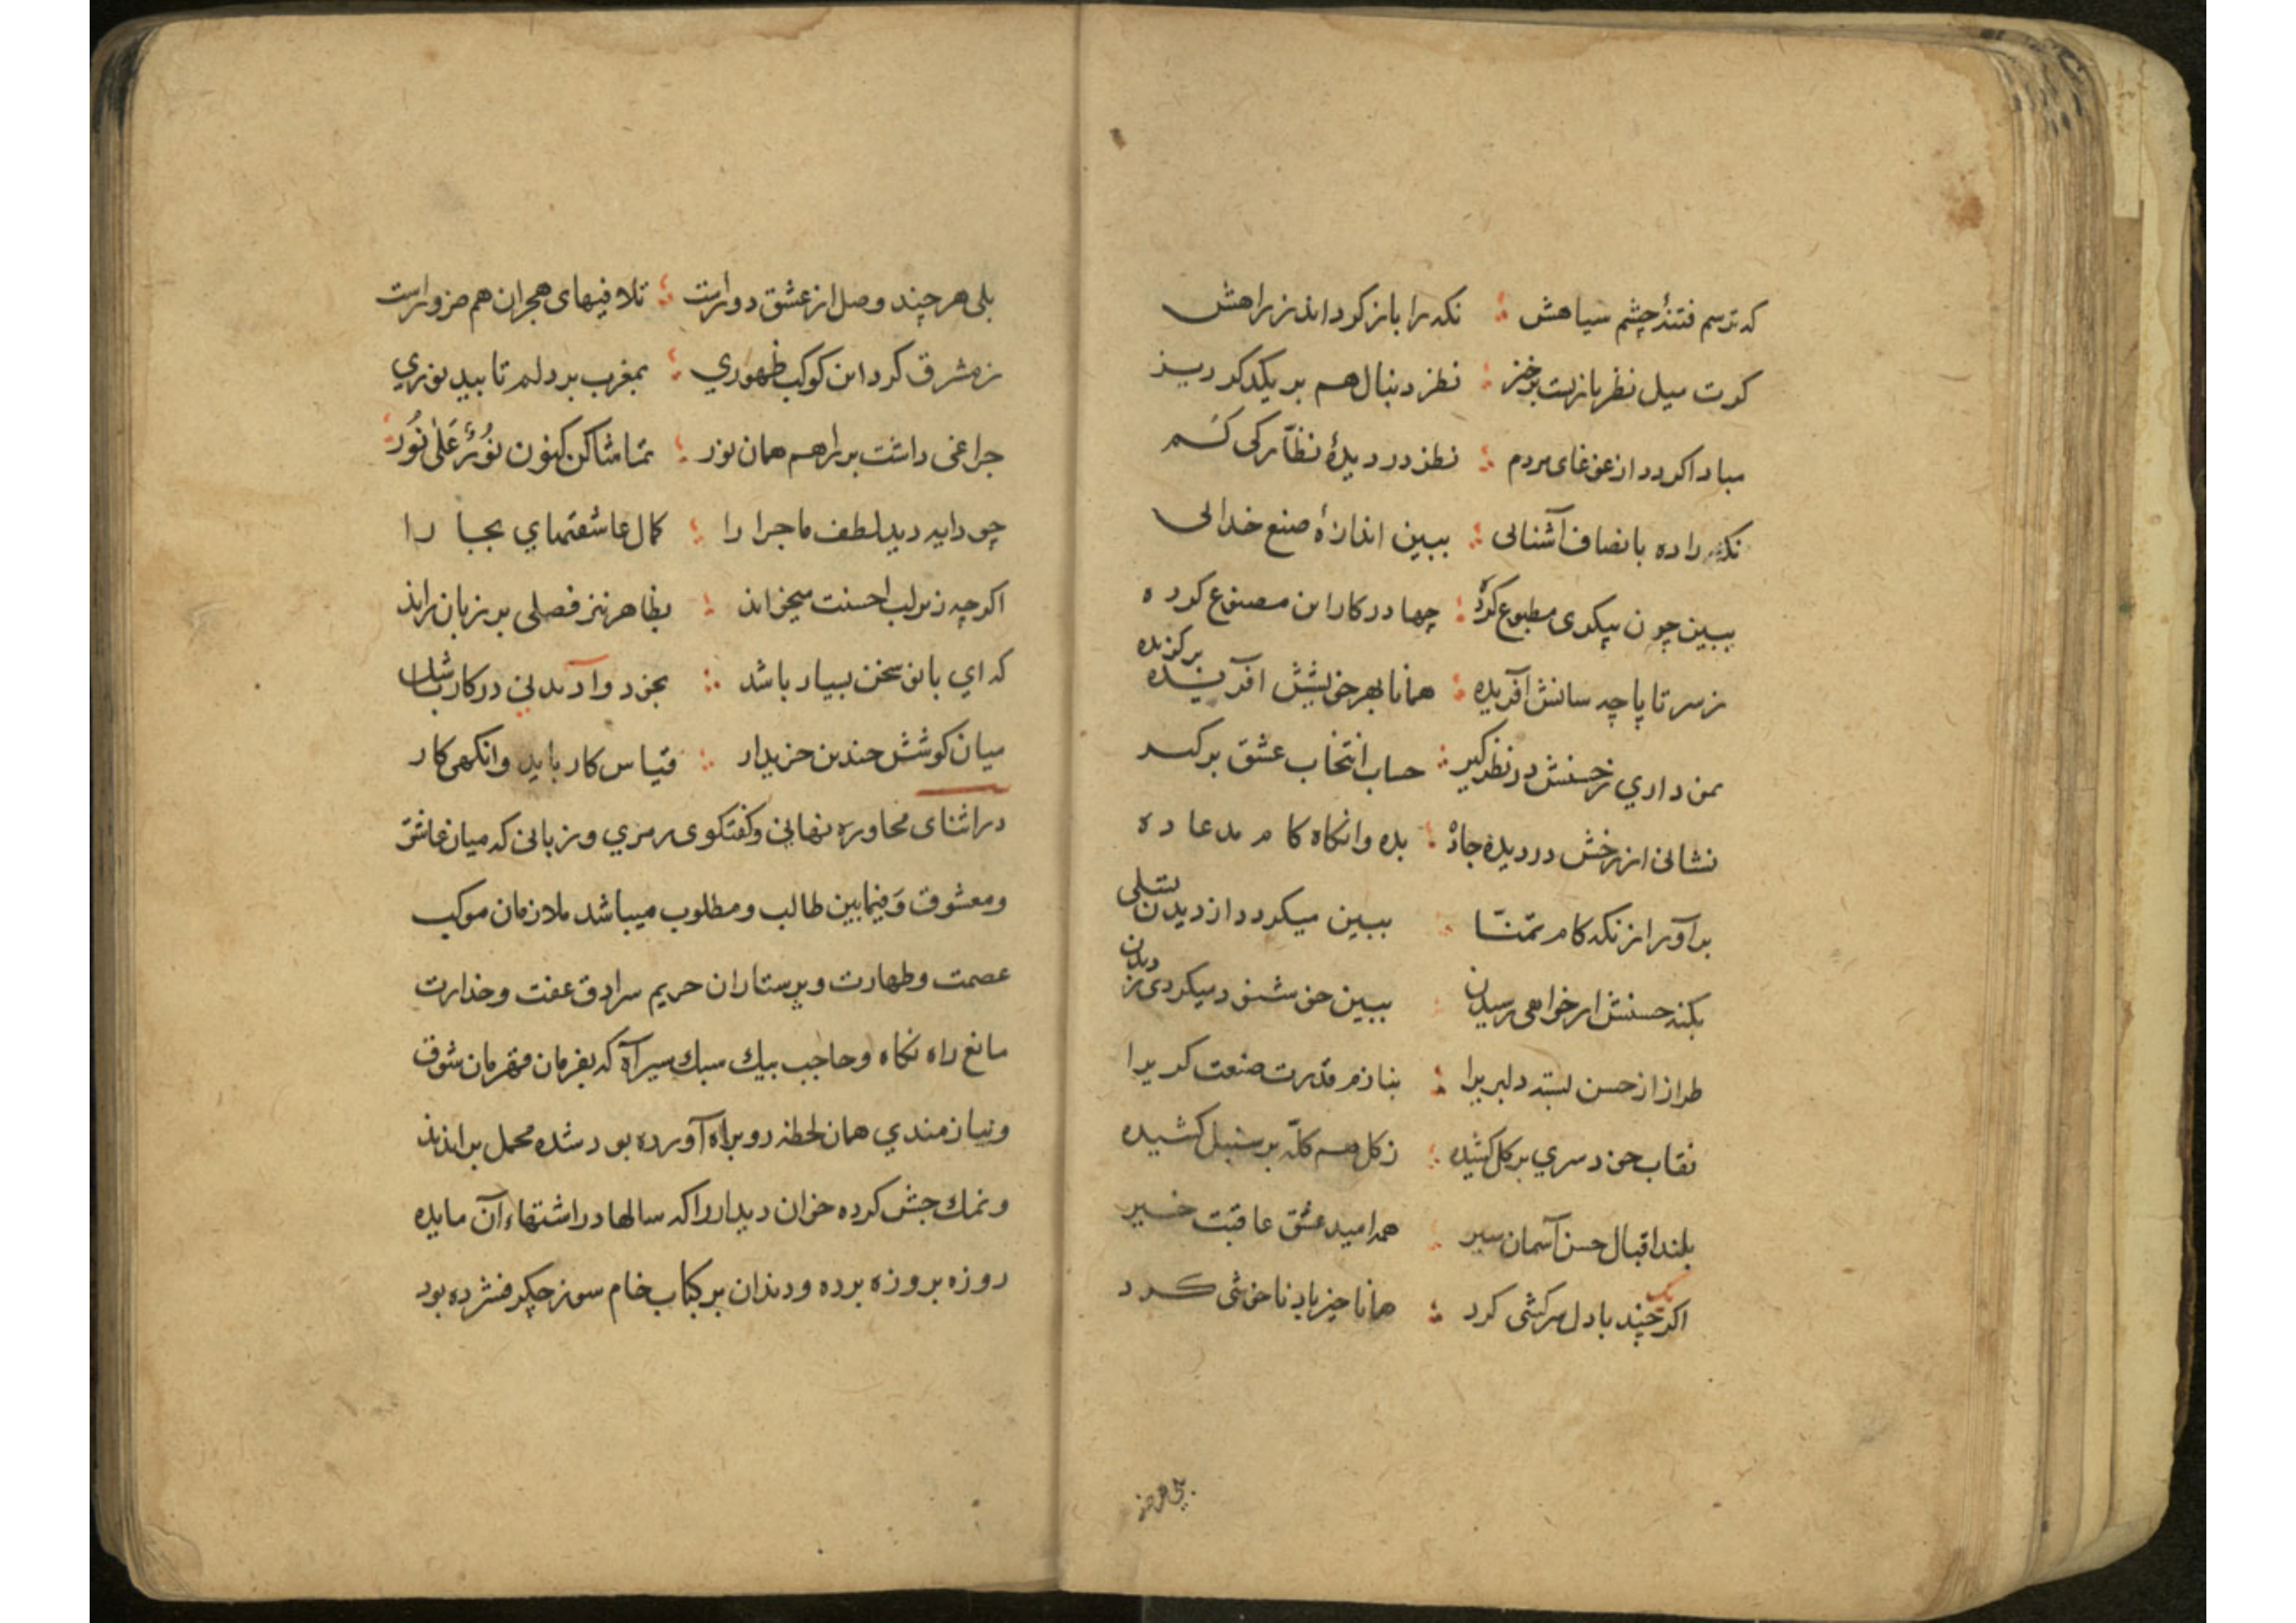 که ترسم فتنهٔ چشم سیاهش ؛ نکه را باز کرداند ز راهش
کرت میل نظربازیست برخیز ؛ نظر دنبال هم بر یکدکر ریز
مبادا کردد از غوغای مردم ؛ نظر در دیدهٔ نظارکی کم
نکه را ده بانصاف آشنائی ؛ ببین اندازهٔ صنع خدائی
ببین چون پیکری مطبوع کرده ؛ چها در کار این مصنوع کرده
ز سر تا پا چه سانش آفریده ؛ همانا بهر خویشش آفریده برکزیده
بمن داری ز حسنش در نظر کیر ؛ حساب انتخاب عشق برکیر
نشانی از رخش در دیده جاده ؛ بده وانکاه کام مدعا ده
برآور از نکه کام تمنّا ؛ ببین میکردد از دیدن تسلی
بکنه حسنش ار خواهی رسیدن ؛ ببین خوشنود میکردی ز دیدن
طراز از حسن بسته دلبریرا ؛ بنازم قدرت صنعت کریرا
نقاب خود سری بر کل کشیده ؛ ز کل هم کلّه بر سنبل کشیده
بلند اقبال حسن آسمان سیر ؛ همه امید عشق عاقبت خیر
اکر یک چند با دل سرکشی کرد ؛ همانا خیرباد ناخوشی کرد
بلی هر چند
بلی هر چند وصل از عشق دورست ؛ تلافیهای هجران هم ضرورست
ز مشرق کرد این کوکب ظهوری ؛ بمغرب بر دلم تابید نوری
چراغی داشت بر راهم همان نور ؛ تماشا کن کنون نُورٌ عَلیٰ نُور
چو دایه دید لطف ماجرا را ؛ کمال عاشقیهای بجا را
اکرچه زیر لب احسنت میخواند ؛ بظاهر نیز فصلی بر زبان راند
که ای بانو سخن بسیار باشد ؛ بخود وآمدنی در کار باشد
میان کوشش چندین خریدار ؛ قیاس کار باید وانکهی کار
در اثنای محاوره نهانی و کفتکوی رمزی و زبانی که میان عاشق
ومعشوق وَفیمابین طالب ومطلوب میباشد ملازمان موکب
عصمت وطهارت وپرستاران حریم سرادق عفت وخدارت
مانع راه نکاه وحاجب پیك سبك سیر آه که بفرمان قهرمان شوق
ونیازمندی همان لحظه رو براه آورده بود شده محمل براندند
ونمك چش کرده خوان دیدار را که سالها در اشتهاء آن مایده
روزه بروزه برده ودندان بر کباب خام سوز جکر فشرده بود